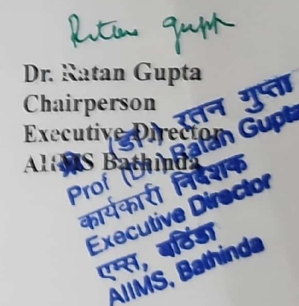 Ratan Gupta
Dr. Ratan Gupta
Chairperson
Executive Director
AIIMS Bathinda
प्रो (डॉ.) रतन गुप्ता
Prof (Dr.) Ratan Gupta
कार्यकारी निदेशक
Executive Director
एम्स, बठिंडा
AIIMS, Bathinda